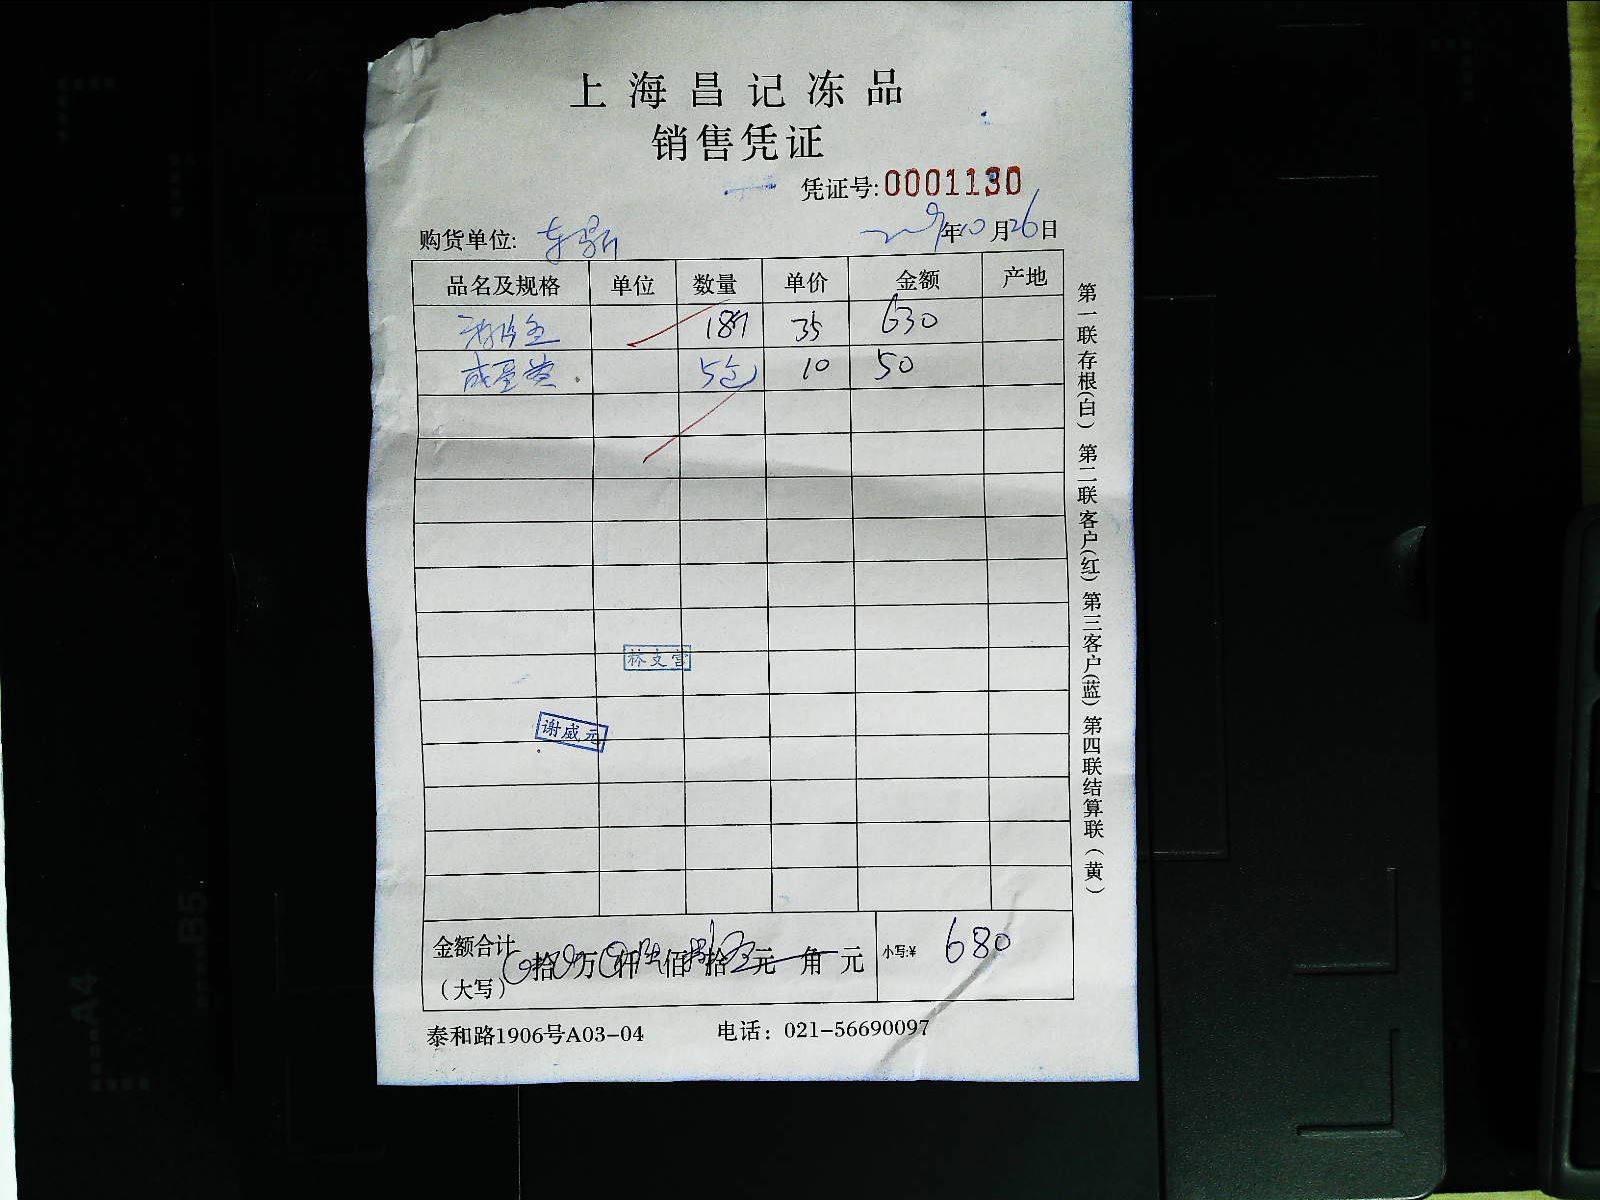 上海昌记冻品
销售凭证
凭证号:0001130
购货单位: 年10月26日
品名及规格 单位 数量 单价 金额 产地
18 35 630
5包 10 50
林支雷
谢威元
金额合计 拾 万 仟 佰 拾 元 角 元 小写:¥ 680
(大写)
泰和路1906号A03-04 电话: 021-56690097
第一联存根(白) 第二联客户(红) 第三客户(蓝) 第四联结算联(黄)
A4
B5